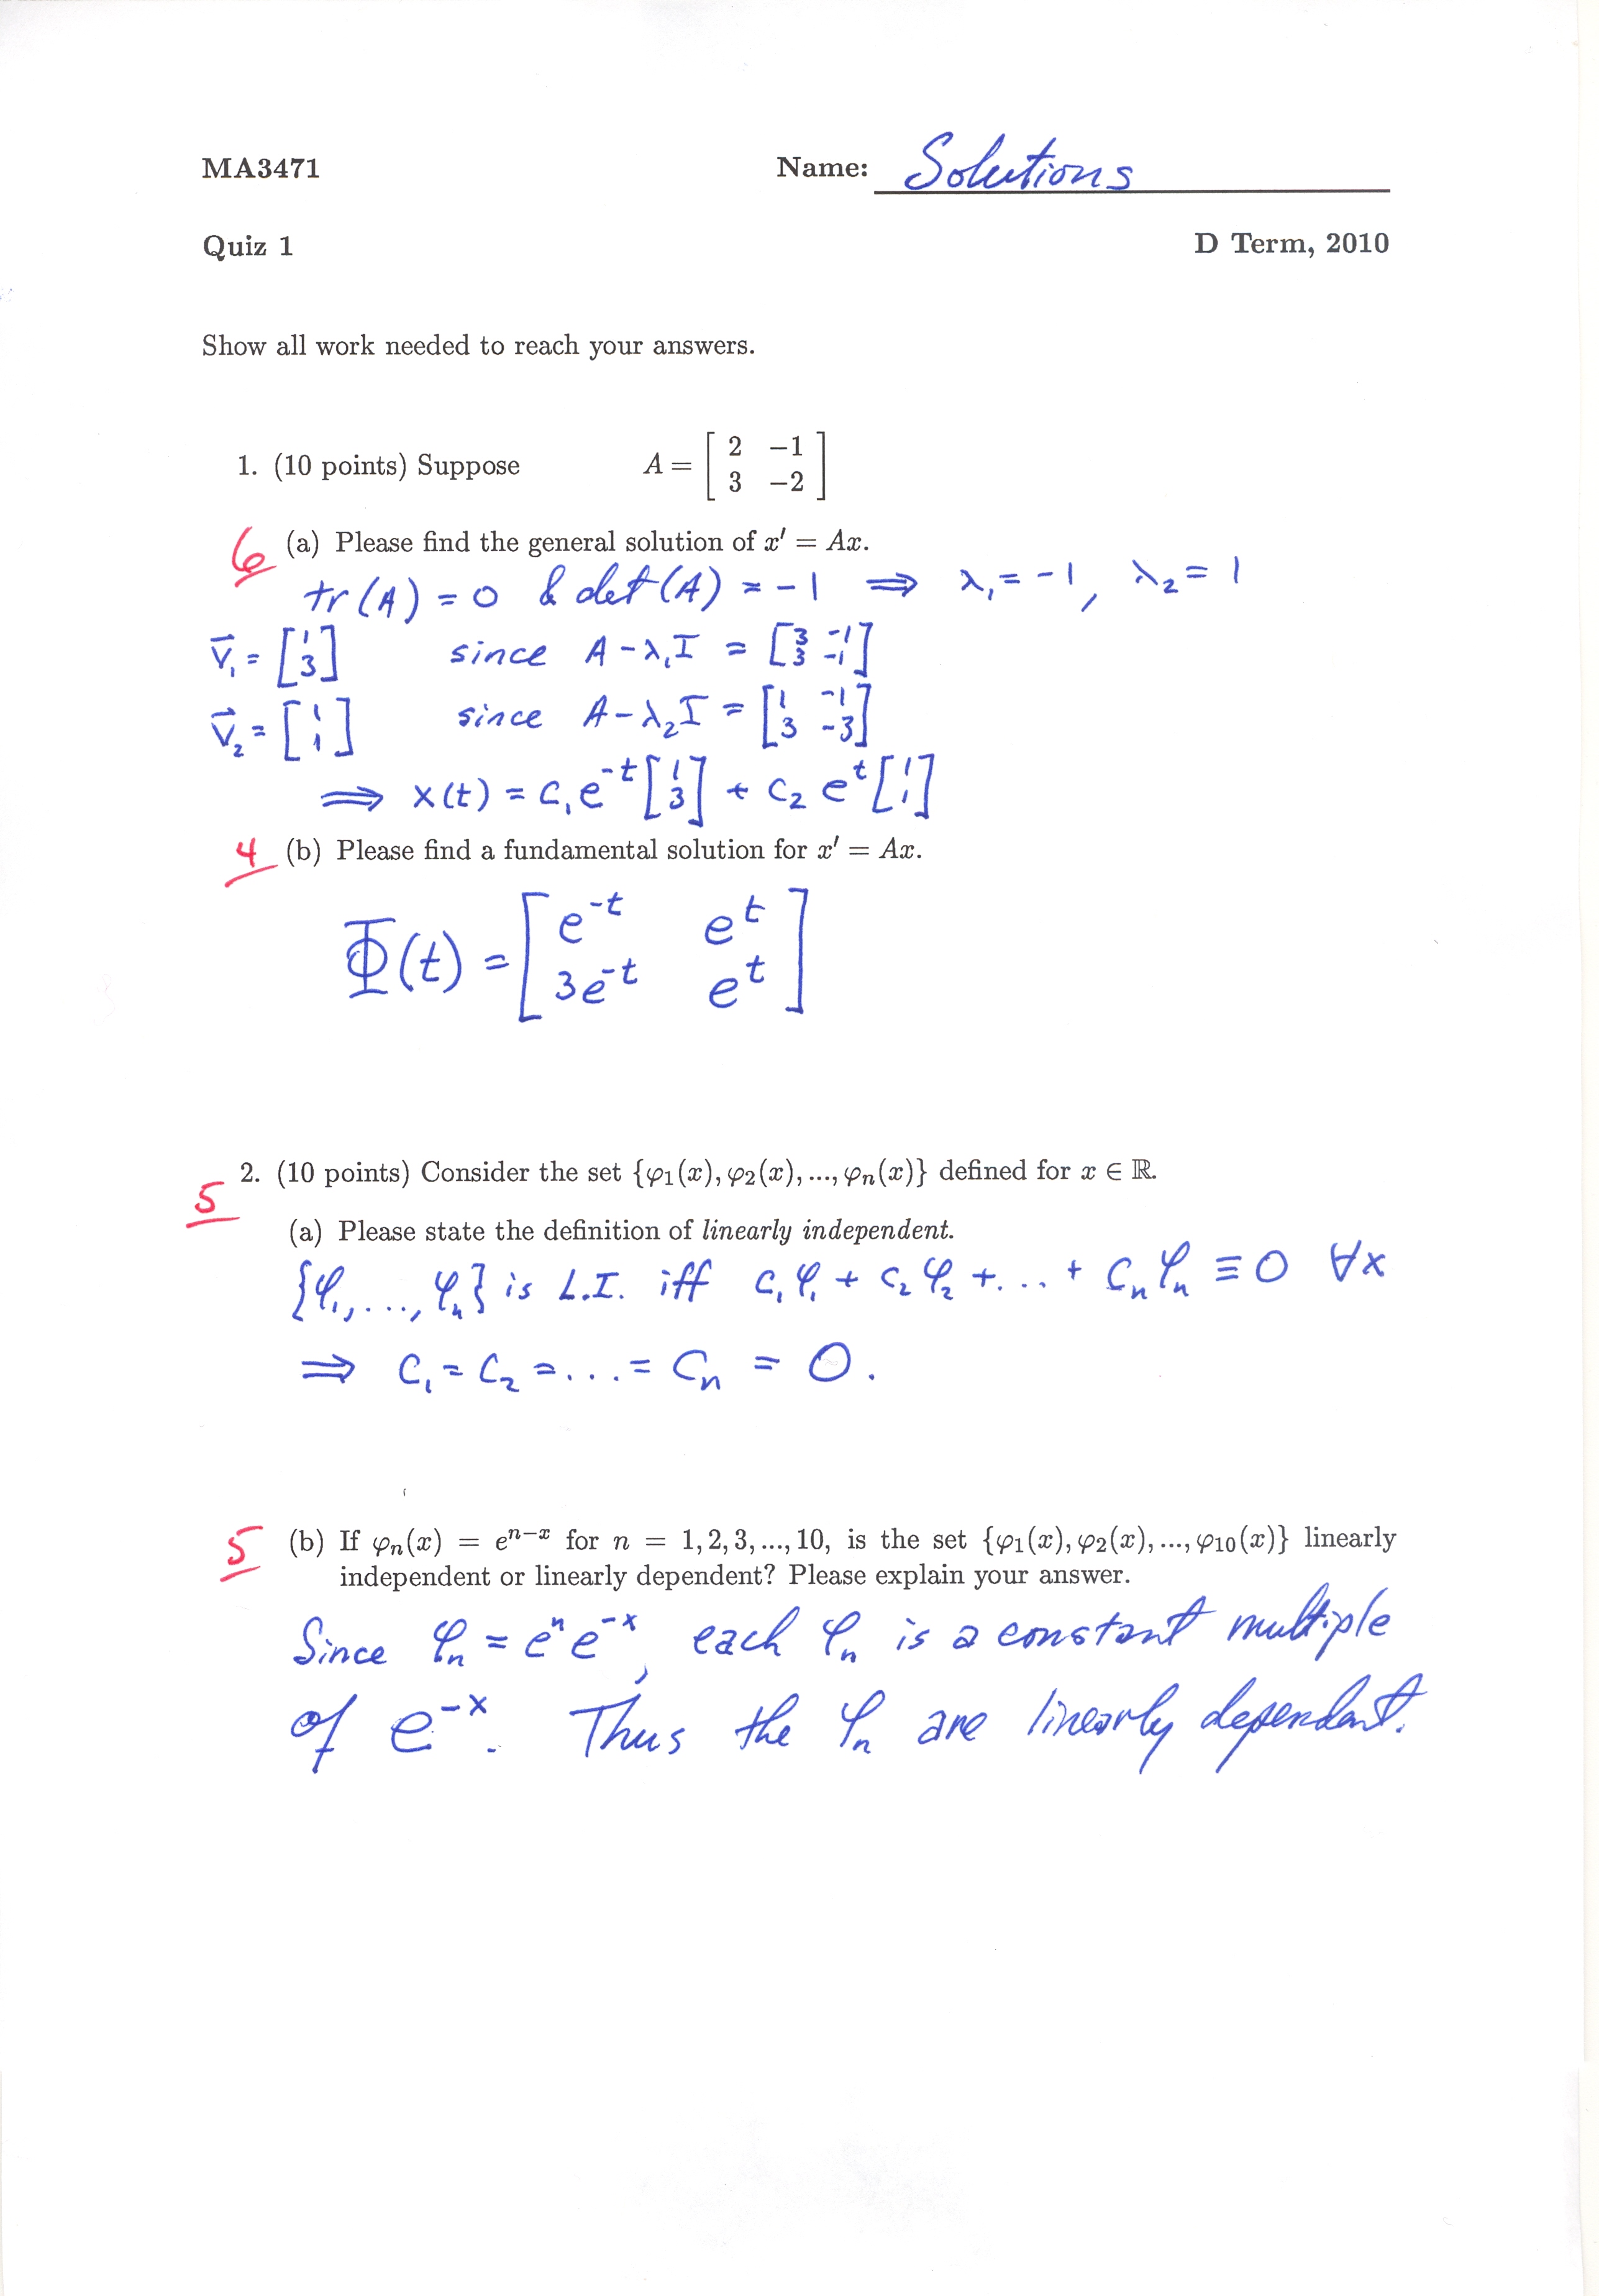 MA3471 Name: Solutions
Quiz 1 D Term, 2010
Show all work needed to reach your answers.
1. (10 points) Suppose A = [ 2 −1 ; 3 −2 ]
6 (a) Please find the general solution of x′ = Ax.
tr(A) = 0 & det(A) = -1 ⟹ λ₁ = -1, λ₂ = 1
v⃗₁ = [1 ; 3] since A - λ₁I = [3 -1 ; 3 -1]
v⃗₂ = [1 ; 1] since A - λ₂I = [1 -1 ; 3 -3]
⟹ x(t) = c₁e^{-t}[1 ; 3] + c₂ e^{t}[1 ; 1]
4 (b) Please find a fundamental solution for x′ = Ax.
Φ(t) = [e^{-t} e^{t} ; 3e^{-t} e^{t}]
5 2. (10 points) Consider the set {φ₁(x), φ₂(x), ..., φₙ(x)} defined for x ∈ ℝ.
(a) Please state the definition of linearly independent.
{φ₁, ..., φₙ} is L.I. iff c₁φ₁ + c₂φ₂ + ... + cₙφₙ ≡ 0 ∀x
⟹ c₁ = c₂ = ... = cₙ = 0.
5 (b) If φₙ(x) = e^{n−x} for n = 1, 2, 3, ..., 10, is the set {φ₁(x), φ₂(x), ..., φ₁₀(x)} linearly
independent or linearly dependent? Please explain your answer.
Since φₙ = eⁿe^{-x}, each φₙ is a constant multiple
of e^{-x}. Thus the φₙ are linearly dependent.